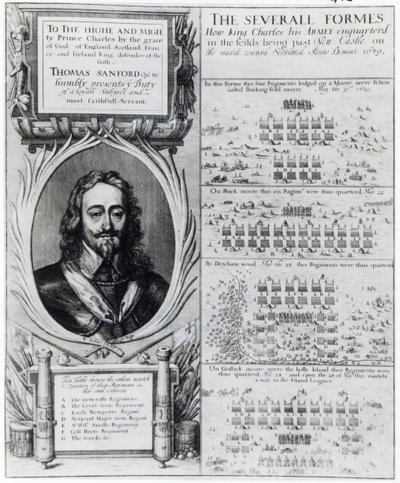 TO THE HIGHE AND MIGH
ty Prince Charles by the grace
of God of England Scotland Fran
ce and Ireland King defendor of the
faith:
THOMAS SANFORD
humbly presents Duty
of a loyall Subject and
most faithfull Servant.
THE SEVERALL FORMES
How King Charles his ARMEY enquarterd
in the feilds being past New Castle on
the march toward Scotland Anno Domini 1639.
In this Forme thes five Regiments lodged on a Moore neere Felton
called Bockingfeild moore May the 1639
On Bock moore thus six Regim. were thus quarterd May 22
By Detcham wood May the 23 thes Regiments were thus quarterd
On Goßick moore neere the holly Island thes Regiments were
thus quarterd May 24 and upon the 28 of May
a way to the Grand Leaguer.
This Table shewes the
Quartring of these Regiments in
A The Generalls Regiment.
B The Levet: Gen: Regiment.
C Earle Newports Regim
D Serjeant Major Gen: Regim
E Sr Will Savills Regiment.
F Coll: Byrts Regiment.
G The Gards &c